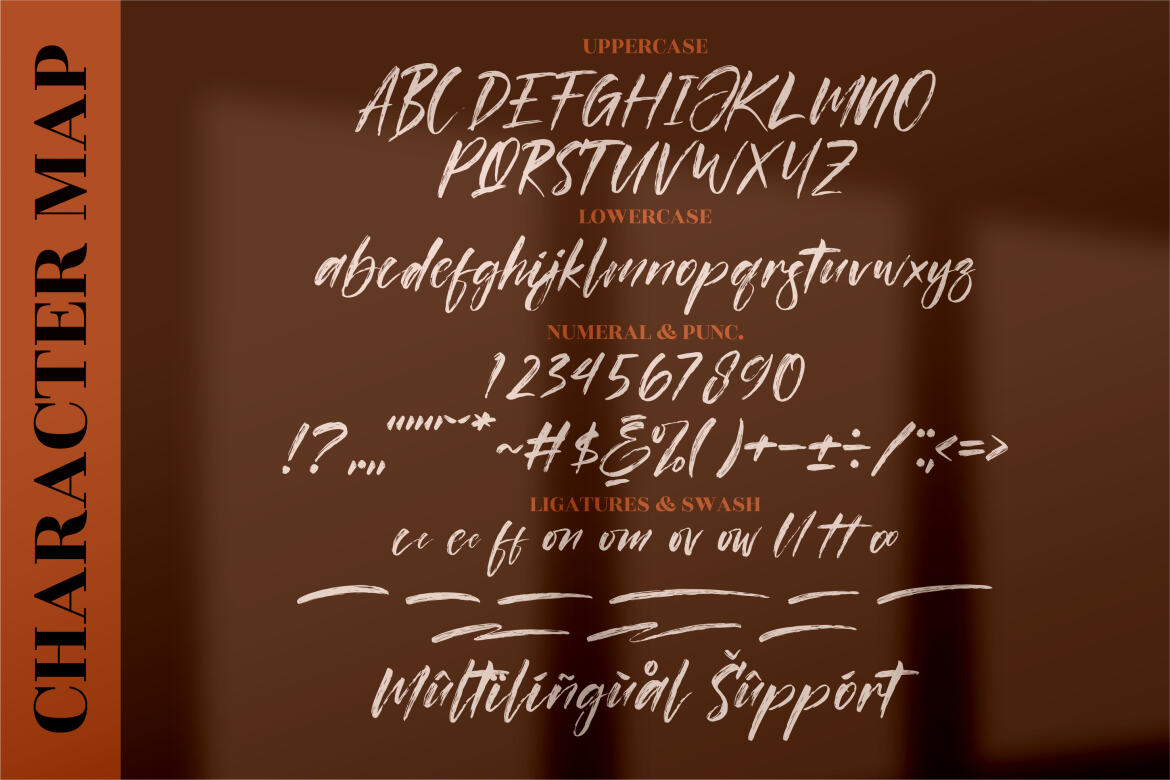 CHARACTER MAP
UPPERCASE
ABCDEFGHIJKLMNO
PQRSTUVWXYZ
LOWERCASE
abcdefghijklmnopqrstuvwxyz
NUMERAL & PUNC.
1234567890
~#$
%()+-±÷/
<=>
LIGATURES & SWASH
ee ff on om ov ow ll tt oo
Mûltïlíñgùål Šûppórt